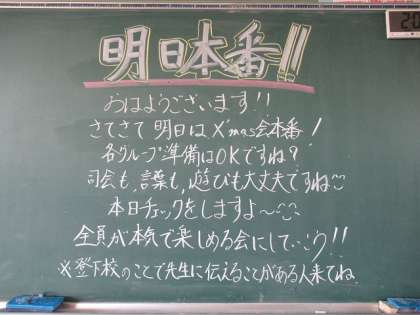 明日本番!!
おはようございます!!
さてさて 明日は X'mas会本番!
各グループ準備はOKですね?
司会も,言葉も,遊びも大丈夫ですね
本日チェックをしますよ〜
全員が本気で楽しめる会にしていこう!!
※登下校のことで先生に伝えることがある人来てね